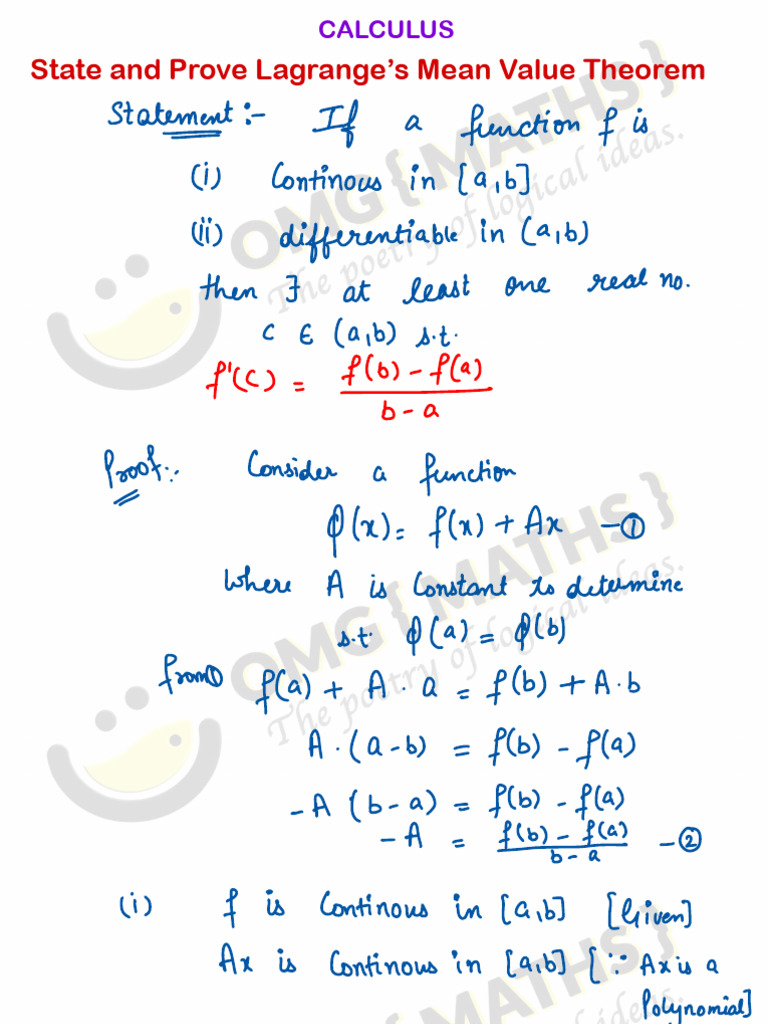 CALCULUS
State and Prove Lagrange's Mean Value Theorem
Statement:- If a function f is
(i) Continous in [a,b]
(ii) differentiable in (a,b)
then ∃ at least one real no.
c ∈ (a,b) s.t.
f'(c) = f(b) - f(a) / b - a
Proof:- Consider a function
φ(x) = f(x) + Ax - ①
Where A is Constant to determine
s.t. φ(a) = φ(b)
from ① f(a) + A · a = f(b) + A · b
A · (a - b) = f(b) - f(a)
- A (b - a) = f(b) - f(a)
- A = f(b) - f(a) / b - a - ②
(i) f is Continous in [a,b] [Given]
Ax is Continous in [a,b] [∵ Ax is a
Polynomial]
OMG { MATHS }
The poetry of logical ideas.
OMG { MATHS }
The poetry of logical ideas.
MATHS }
ideas.